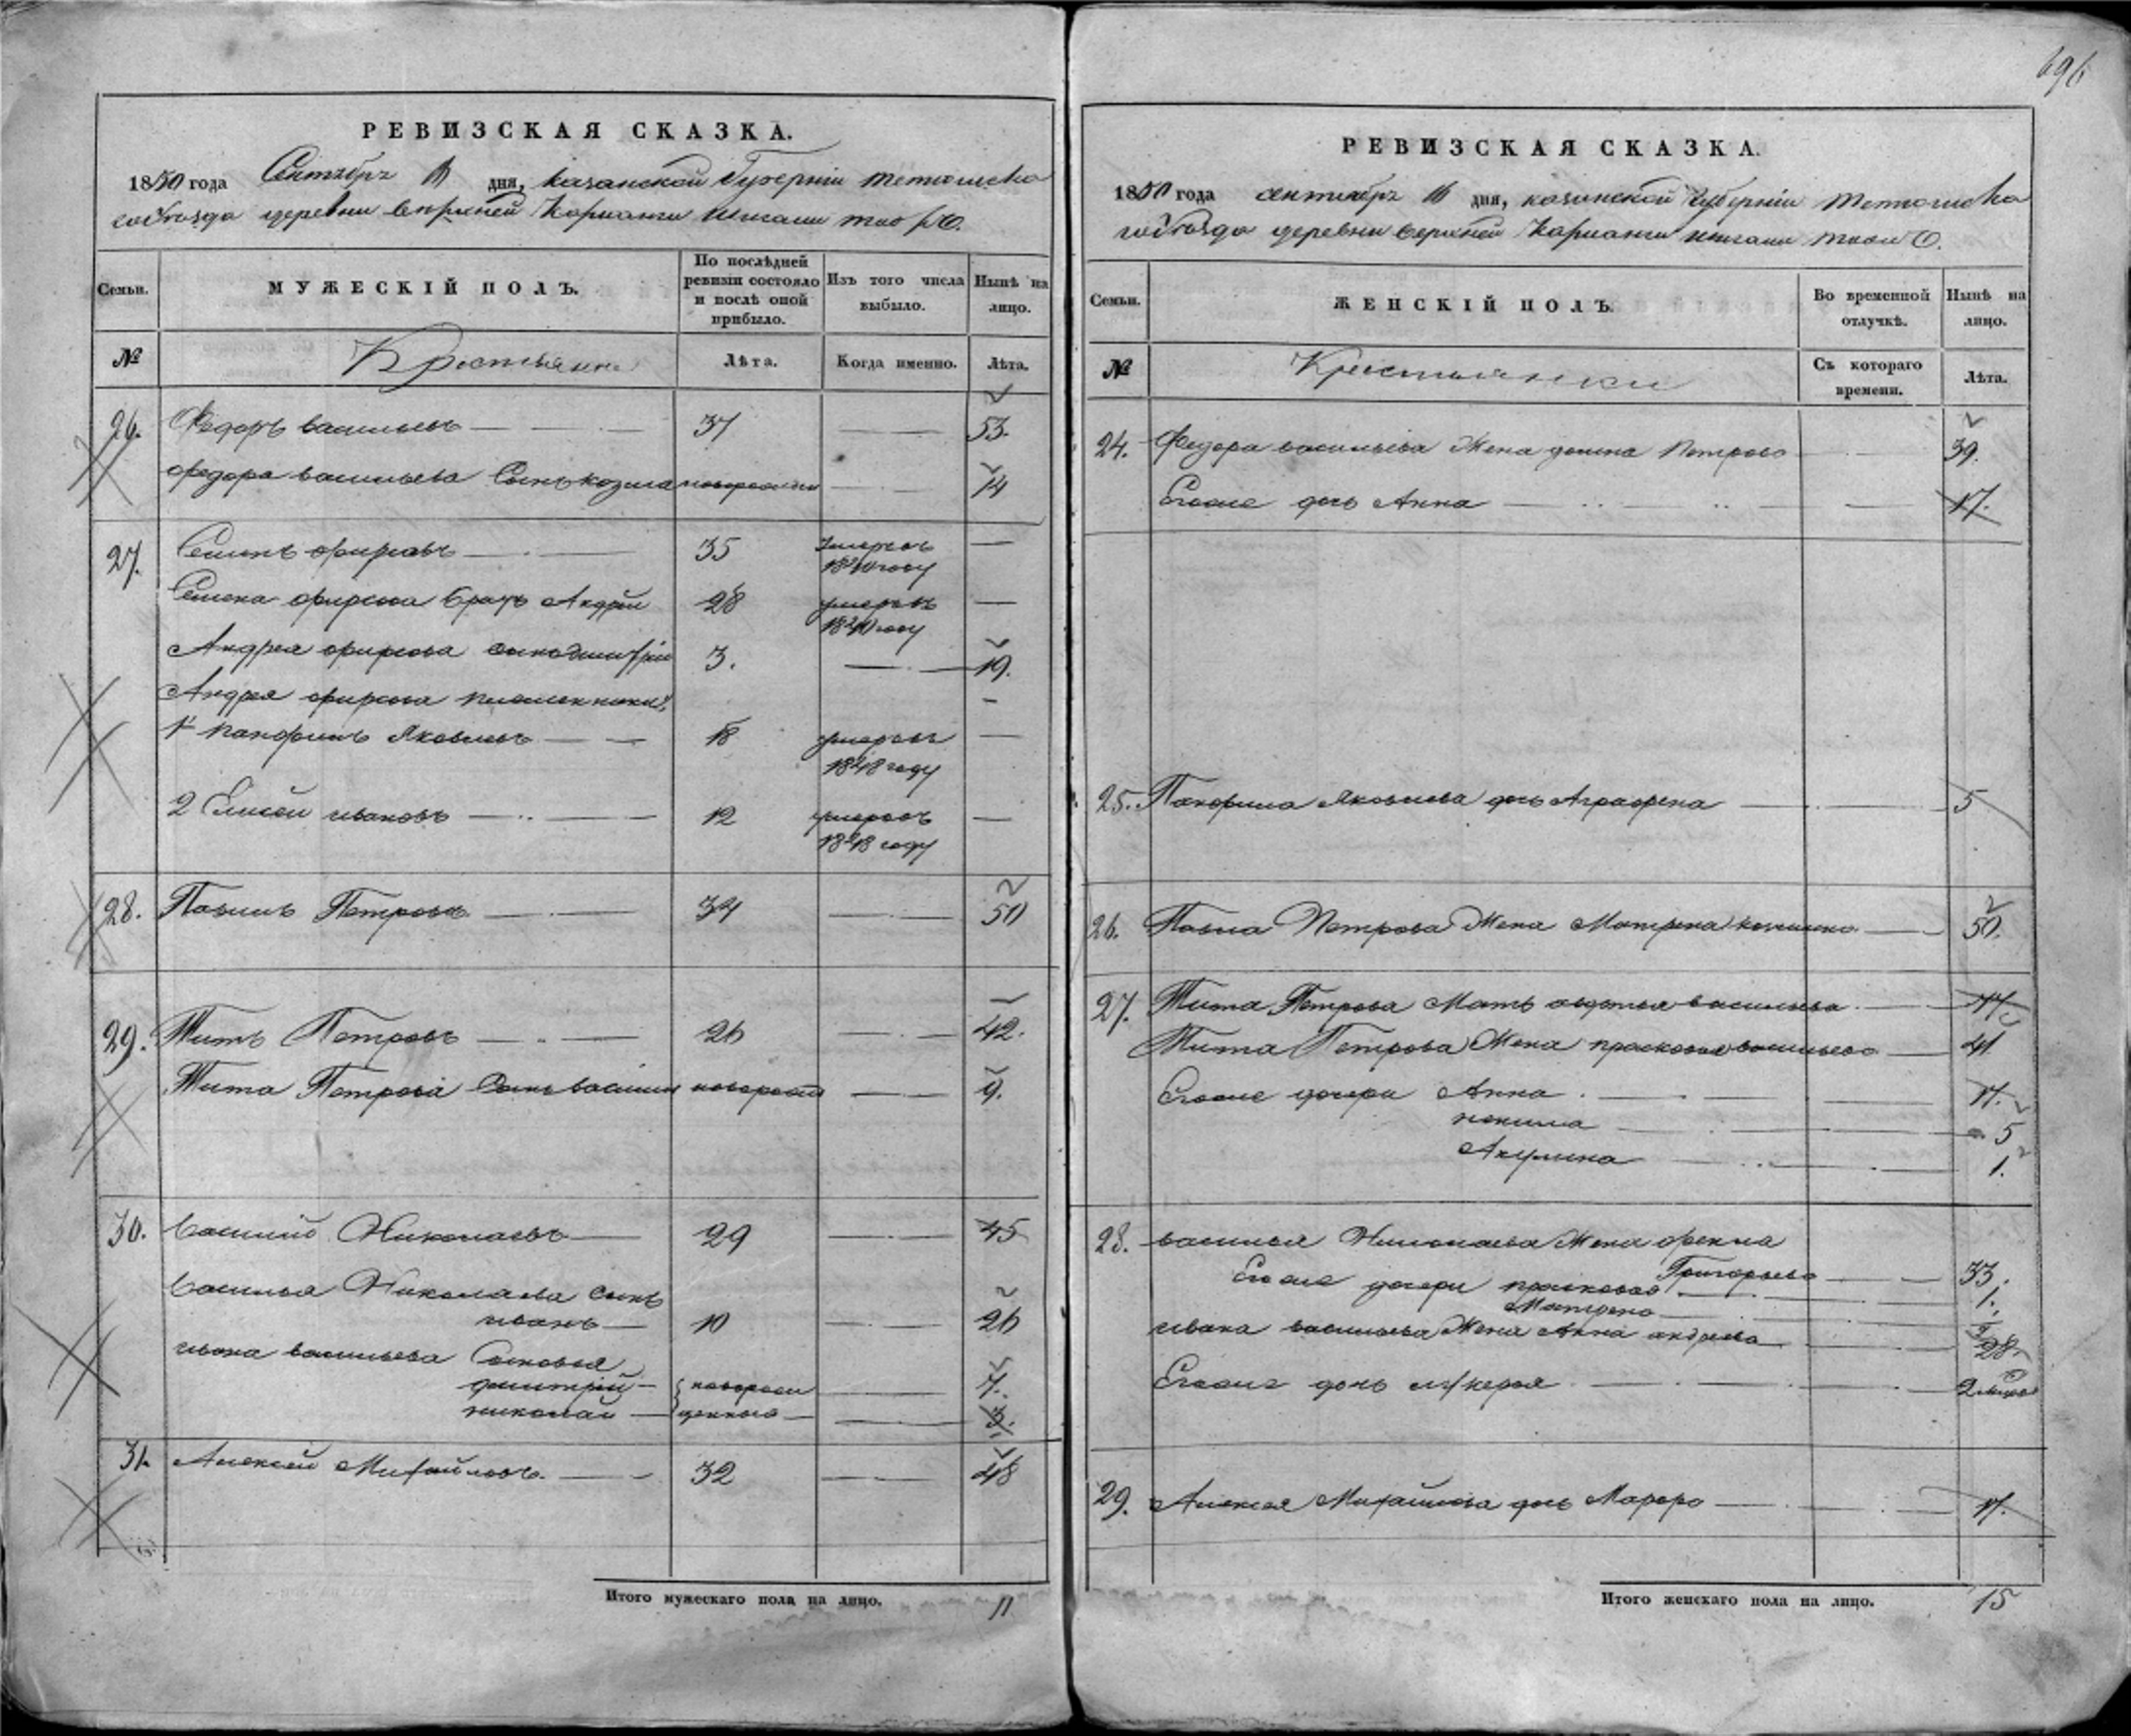 696
РЕВИЗСКАЯ СКАЗКА.
1850 года Сентября дня, казанской Губерніи тетюшска
го уѣзда деревни верхней Карланги
Семьи. МУЖЕСКІЙ ПОЛЪ. По послѣдней ревизіи состояло и послѣ оной прибыло. Изъ того числа выбыло. Нынѣ на лицо.
№ Крестьяне Лѣта. Когда именно. Лѣта.
26. Федоръ васильевъ 37 53.
федора васильева Сынъ козма новорожден 14
27. Семенъ фирсовъ 35 умерсъ 1840 году
Семена фирсова братъ Андрей 28 умеръ 1840 году
Андрея фирсова сынъ дмитрій 3. 19.
Андрея фирсова племенники,
1 панфилъ Яковлевъ 18 умеръ 1848 году
2 Елисей ивановъ 12 умеръ 1848 году
28. Павелъ Петровъ 34 50
29. Титъ Петровъ 26 42.
Тита Петрова Сынъ василій новорожд 9.
30. василій Николаевъ 29 45
василья Николаева сынъ
иванъ 10 26
ивана васильева Сыновья
дмитрій новорож 7.
николай денные 3.
31. Алексей Михайловъ. 32 48
Итого мужескаго пола на лицо. 11
РЕВИЗСКАЯ СКАЗКА.
1850 года сентября дня, казанской губерніи тетюшска
го уѣзда деревни верхней Карланги
Семьи. ЖЕНСКІЙ ПОЛЪ. Во временной отлучкѣ. Нынѣ на лицо.
№ Крестьянки Съ котораго времени. Лѣта.
24. Федора васильева Жена домна Петрова 39.
Егоже дочь Анна 17.
25. Панфила Яковлева дочь Аграфена 5
26. Павла Петрова Жена Матрена 50.
27. Тита Петрова Мать авдотья васильева
Тита Петрова Жена прасковья васильева 41
Егоже дочери Анна
5
Акулина 1.
28. василья Николаева Жена
Григорьева 33.
Егоже дочери прасковья 1.
Матрена
ивана васильева Жена Анна андреева 28.
Егоже дочь лукерья 2
29. Алексея Михайлова дочь Марфа
Итого женскаго пола на лицо. 15